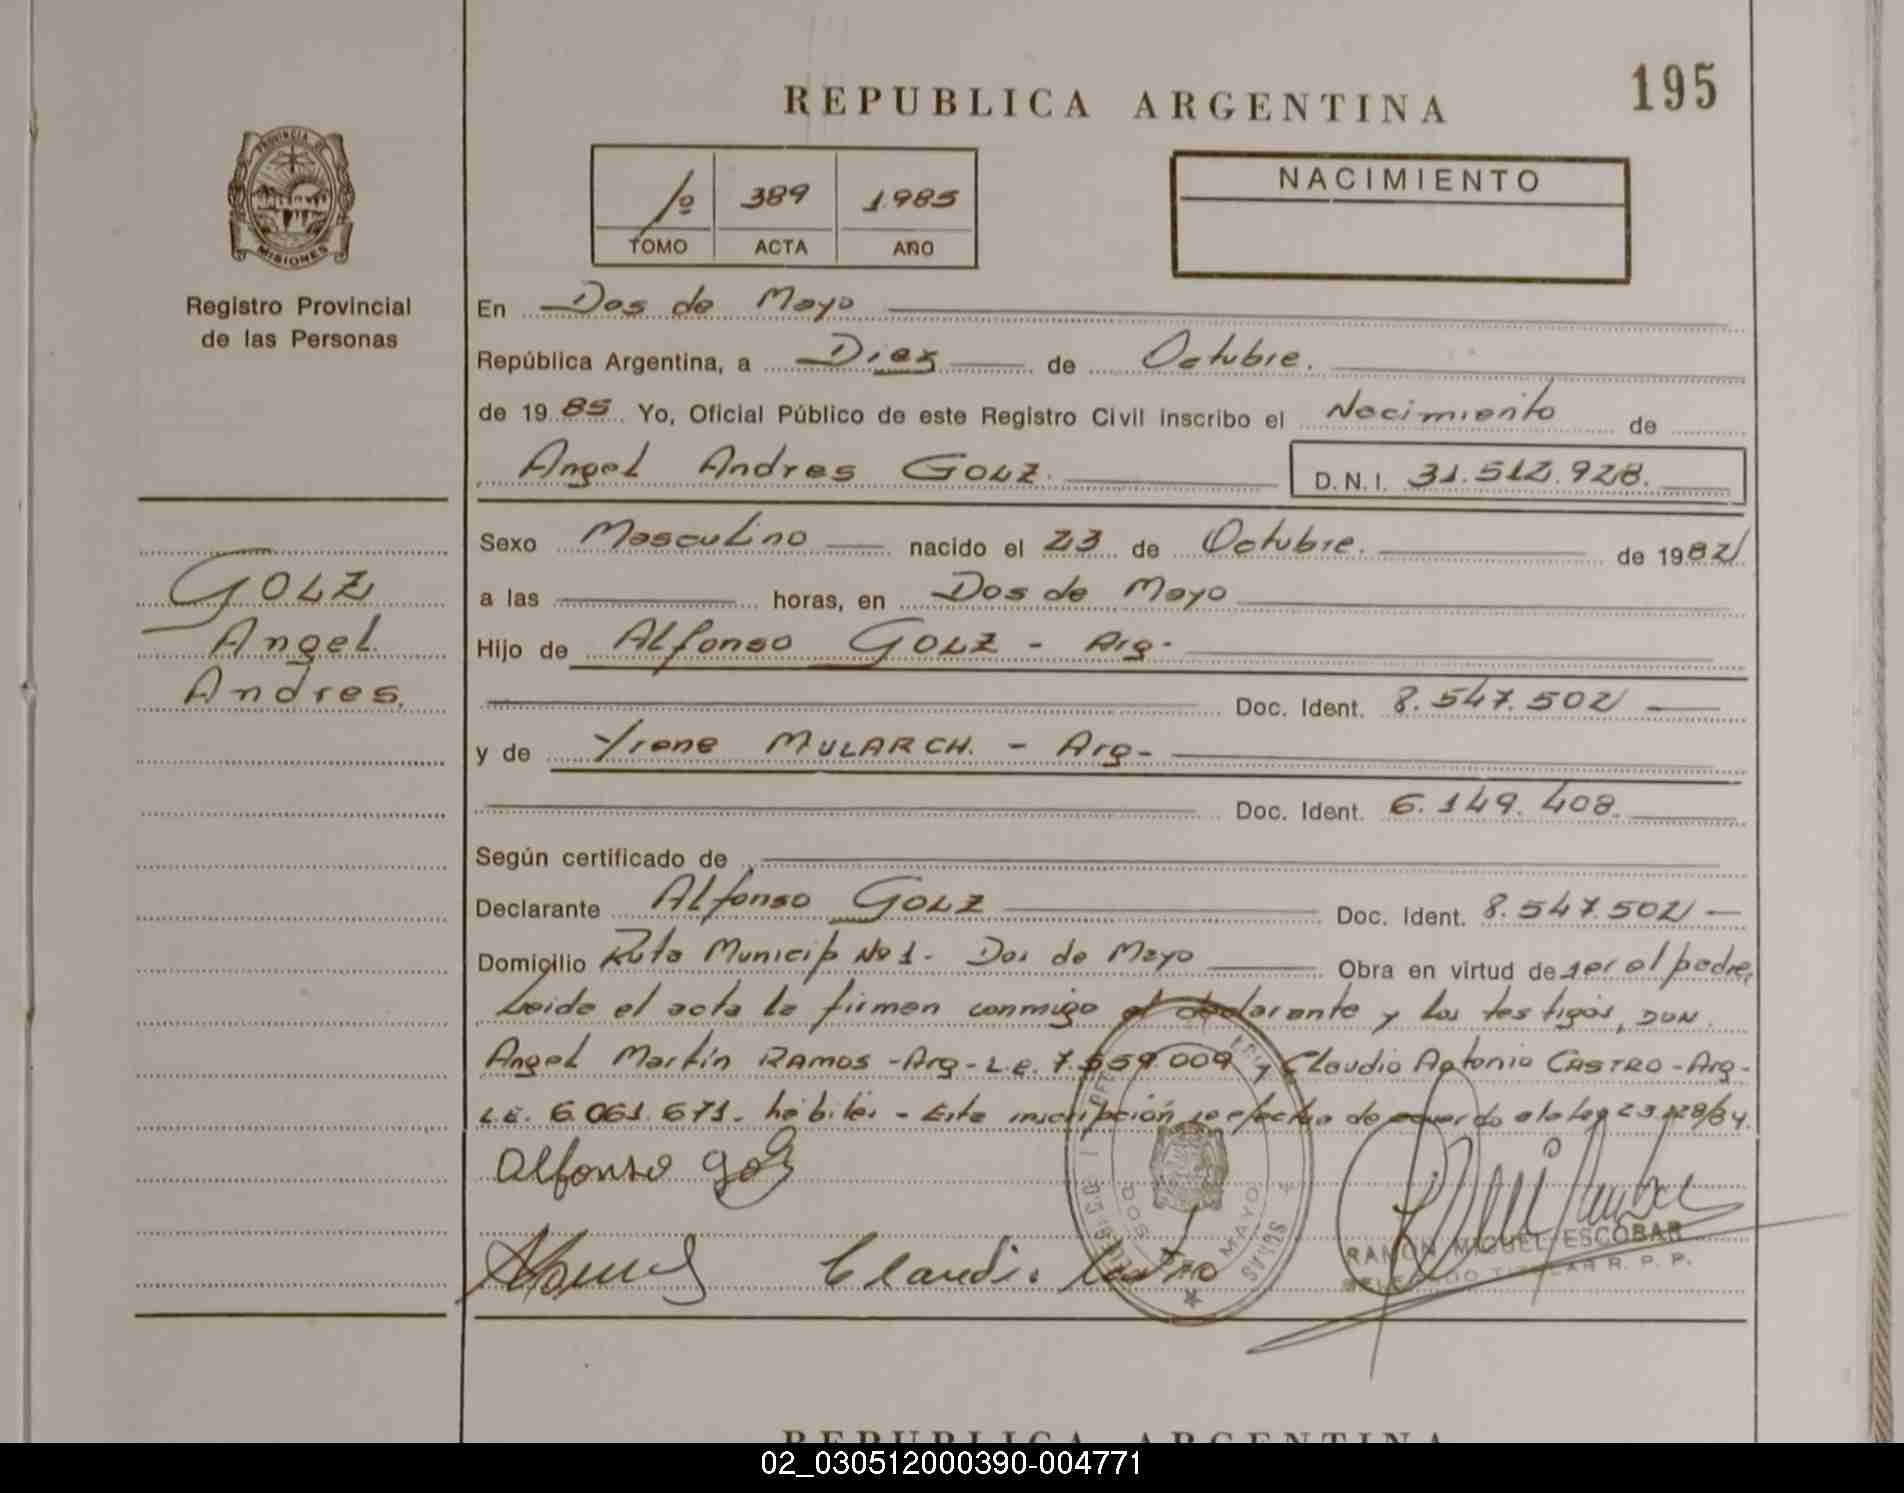 REPUBLICA ARGENTINA
195
PROVINCIA DE
MISIONES
Registro Provincial
de las Personas
1º 389 1.985
TOMO ACTA AÑO
NACIMIENTO
En Dos de Mayo
República Argentina, a Diez de Octubre.
de 19 85 Yo, Oficial Público de este Registro Civil inscribo el Nacimiento de
Angel Andres GOLZ.
D.N.I. 31.512.928.
GOLZ
Angel
Andres.
Sexo Masculino nacido el 23 de Octubre. de 1982
a las horas, en Dos de Mayo
Hijo de Alfonso GOLZ - Arg-
Doc. Ident. 8.547.502
y de Yrene MULARCH. - Arg-
Doc. Ident. 6.149.408.
Según certificado de
Declarante Alfonso GOLZ Doc. Ident. 8.547.502
Domicilio Ruta Municip No 1. Dos de Mayo Obra en virtud de ser el padre,
Leida el acta la firman conmigo el declarante y los testigos, DON
Angel Martín RAMOS - Arg - L.E. 7.559.009 y Claudio Antonio CASTRO - Arg -
L.E. 6.061.671. hábiles - Esta inscripción se efectua de acuerdo a la Ley 23.128/84.
Alfonso Golz
Claudio Castro
DOS DE MAYO
RAMON MIGUEL ESCOBAR
DELEGADO TITULAR R. P. P.
REPUBLICA ARGENTINA
02_030512000390-004771